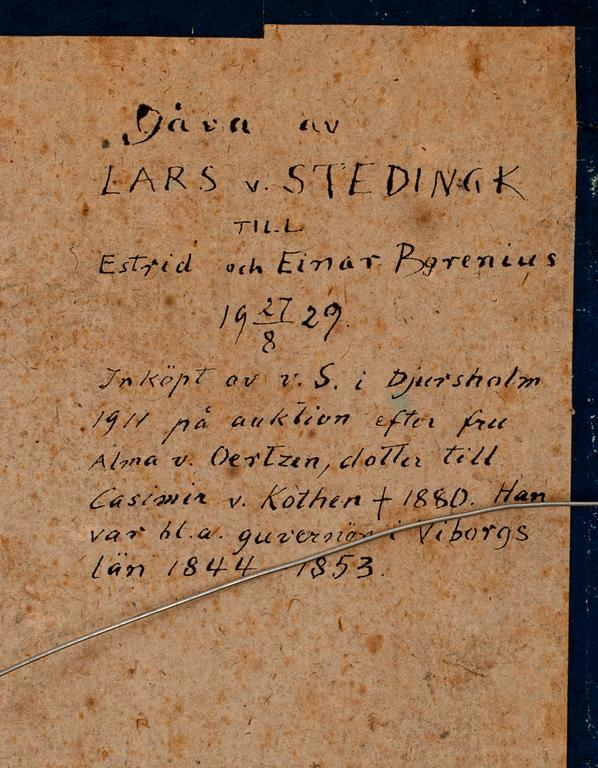 Gåva av
LARS v. STEDINGK
TILL
Estrid och Einar Borenius
19 27/8 29.
Inköpt av v. S. i Djursholm
1911 på auktion efter fru
Alma v. Oertzen, dotter till
Casimir v. Kothen † 1880. Han
var bl.a. guvernör i Viborgs
län 1844 1853.